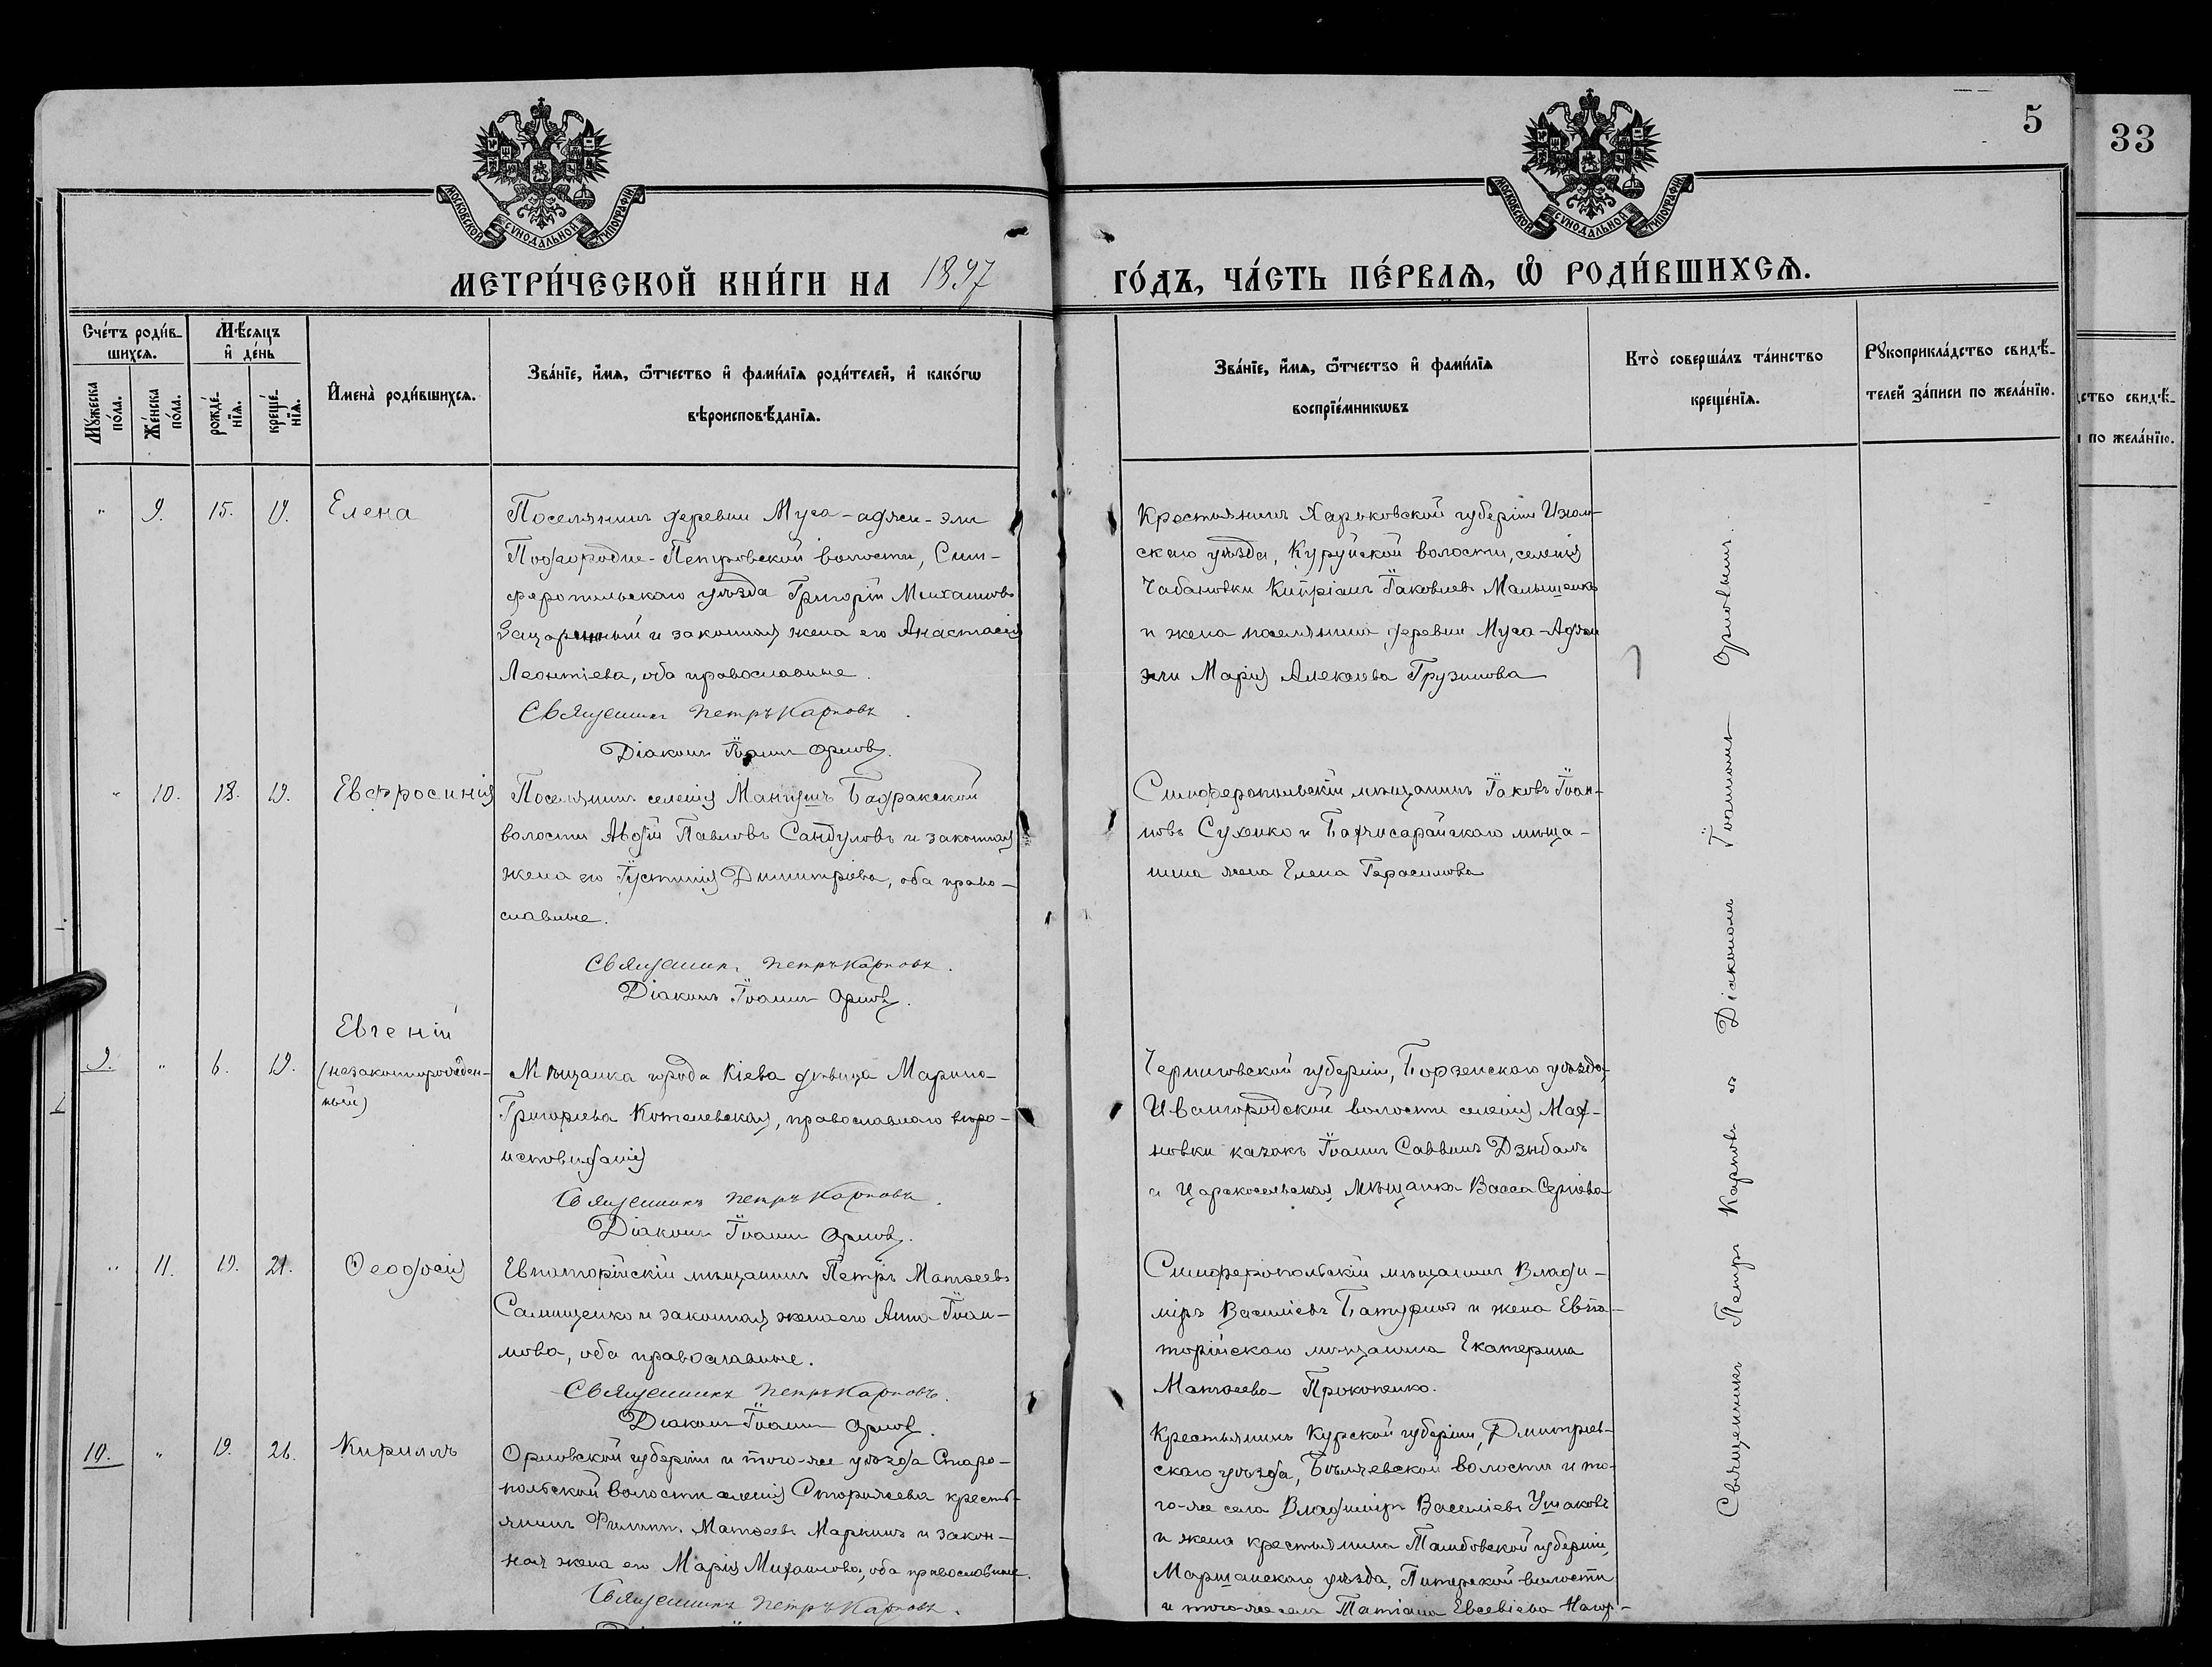 5
33
МОСКОВСКОЙ СѴНОДАЛЬНОЙ ТИПОГРАФІИ
МОСКОВСКОЙ СѴНОДАЛЬНОЙ ТИПОГРАФІИ
МЕТРИ́ЧЕСКОЙ КНИ́ГИ НА 1897
ГО́ДЪ, ЧА́СТЬ ПЕ́РВАѦ, Ѿ РОДИ́ВШИХСѦ.
Сче́тъ роди́в-
шихсѧ.
Мѣ́сѧцъ
и҆ де́нь
Мꙋ́жеска
по́ла.
Же́нска
по́ла.
рожде́-
нїѧ.
креще́-
нїѧ.
И҆мена̀ роди́вшихсѧ.
Зва́нїе, и҆́мѧ, ѻ҆́тчество и҆ фами́лїѧ роди́телей, и҆ како́гѡ
вѣроисповѣ́данїѧ.
Зва́нїе, и҆́мѧ, ѻ҆́тчество и҆ фами́лїѧ
воспрїе́мникѡвъ
Кто̀ соверша́лъ та́инство
креще́нїѧ.
Рꙋкоприкла́дство свидѣ́-
телей за́писи по жела́нїю.
дство свидѣ́-
по жела́нїю.
" 9. 15. 19. Елена
Поселянинъ деревни Муса-аджи-эли
Подгородне-Петровской волости, Сим-
феропольскаго уѣзда Григорій Михаиловъ
и законная жена его Анастасія
Леонтіева, оба православные.
Священникъ Петръ Карповъ.
Діаконъ Іоаннъ Орловъ.
Крестьянинъ Харьковской губерніи Изюм-
скаго уѣзда, волости, селенія
Чабановки Кипріанъ Іаковлевъ Малышенко
и жена поселянина деревни Муса-Аджи
эли Марія Алексѣева Грузинова
" 10. 18. 19. Евфросинія
Поселянинъ селенія Мангушъ Бадракской
волости Авдій Павловъ Сандуловъ и законная
жена его Іустинія Димитріева, оба право-
славные.
Священникъ Петръ Карповъ.
Діаконъ Іоаннъ Орловъ.
Симферопольскій мѣщанинъ Іаковъ Іоан-
новъ Сухенко и Бахчисарайскаго мѣща-
нина жена Елена Герасимова
9. " 6. 19. Евгеній
(незаконнорожден-
ный)
Мѣщанка города Кіева дѣвица Марина
Григорьева Котелевская, православнаго вѣро-
исповѣданія
Священникъ Петръ Карповъ.
Діаконъ Іоаннъ Орловъ.
Черниговской губерніи, Борзенскаго уѣзда,
Ивангородской волости селенія Мах-
новки казакъ Іоаннъ Саввинъ
и Царскосельская мѣщанка Васса Сергіева
" 11. 19. 21. Ѳеодосія
Евпаторійскій мѣщанинъ Петръ Матѳеевъ
Самищенко и законная жена его Анна Іоан-
нова, оба православные.
Священникъ Петръ Карповъ.
Діаконъ Іоаннъ Орловъ.
Симферопольскій мѣщанинъ Влади-
міръ Василіевъ Батуринъ и жена Евпа-
торійскаго мѣщанина Екатерина
Матѳеева Прокопенко.
10. " 19. 26. Кириллъ
Орловской губерніи и того-же уѣзда Старо-
польской волости селенія крестья-
янинъ Филиппъ Матѳеевъ Маркинъ и закон-
ная жена его Марія Михаилова, оба православные.
Священникъ Петръ Карповъ.
Крестьянинъ Курской губерніи, Дмитріев-
скаго уѣзда, волости и то-
го-же села Владиміръ Василіевъ Ушаковъ
и жена крестьянина Тамбовской губерніи,
Моршанскаго уѣзда, Питерской волости
и того-же села Татіана Евсевіева
Священникъ Петръ Карповъ съ Діакономъ Іоанномъ Орловымъ.